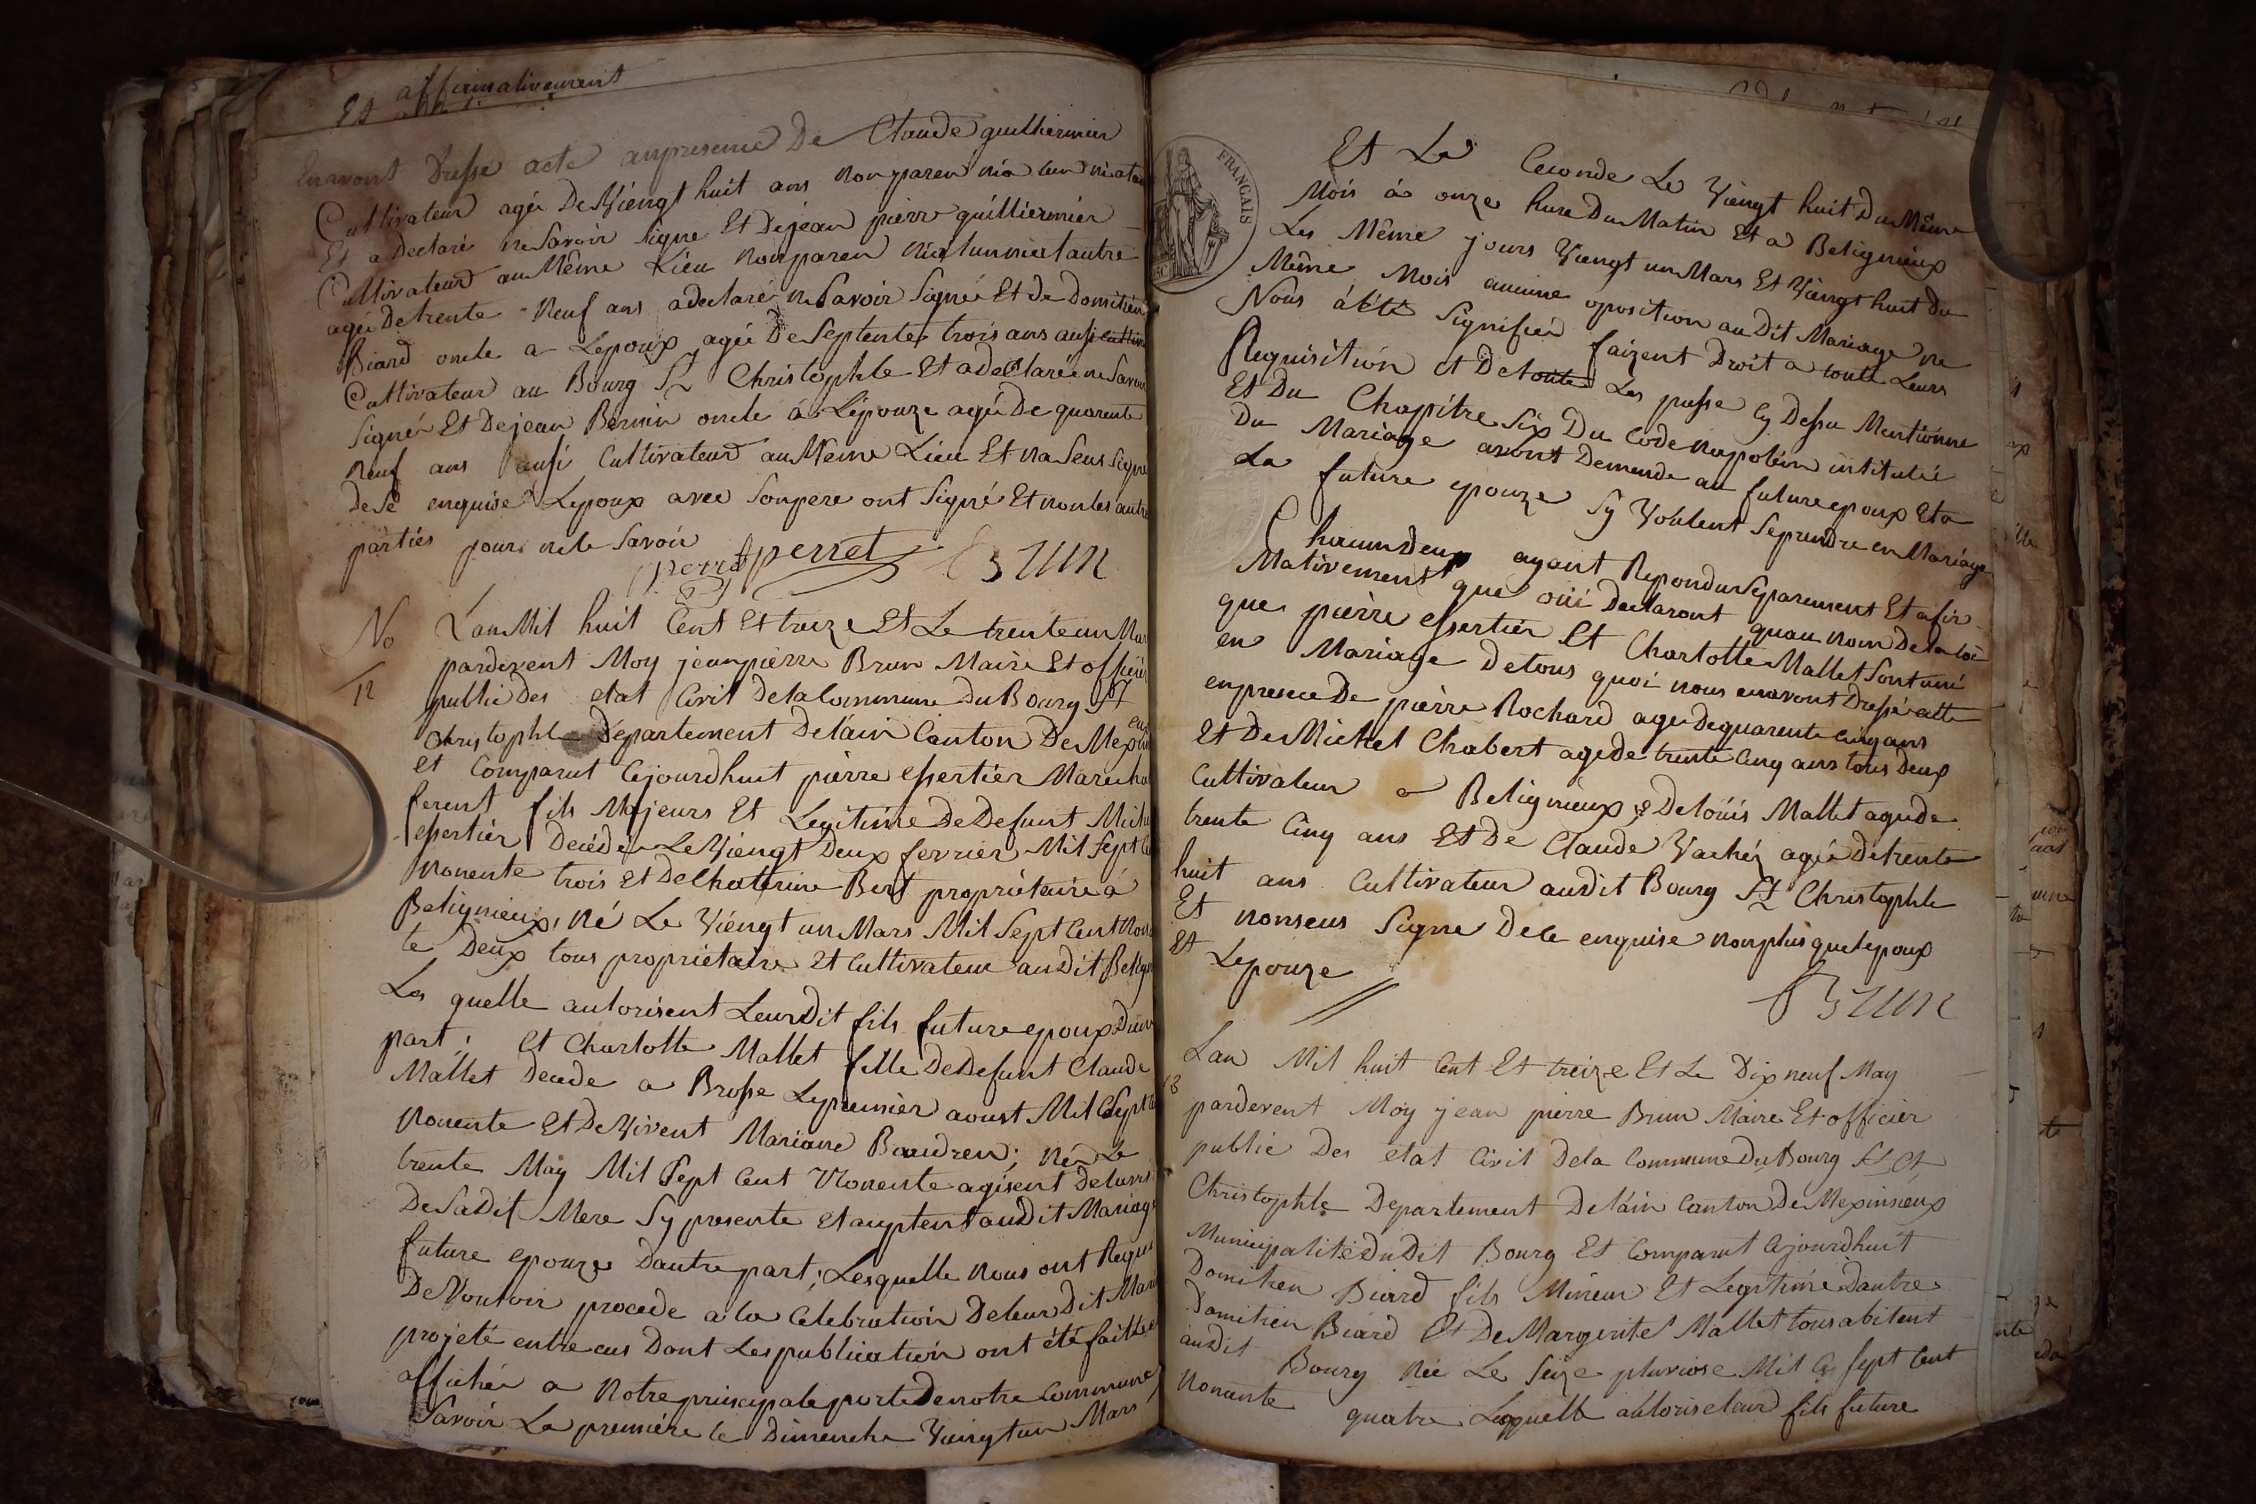 Et affirmativement
En avont Dresse acte anpresence De Claude guilliermier
Cultivateur agée De Viengt huit ans non paren nia lun nia lau
Et a Declaré ne Savoir Signe Et Dejean pierre guilliermier
Cultivateur au Même Lieu non paren nia lun nia lautre
agée De trente Neuf ans a declaré ne Savoir Signé Et de Domitien
Biard oncle a Lepoux agée De Septente trois ans ausi
Cultivateur au Bourg St Christophle Et a Declarée ne Savoir
Signér Et Dejean Bernin oncle á Lépouze agée De quarente
neuf ans ausi Cultivateur au Meme Lieu Et na Seus Signe
De Sé enquise Lepoux avec Son pere ont Signé Et non les autre
parties pour ne le Savoir
perret Brun
No Lan Mil huit Cent Et treize Et Le trente un Mar
12 pardevent Moy jeanpierre Brun Maire Et officier
public Des etat Civil De la Commune Du Bourg St
Christophle Département De láin Canton De Mexim
et Comparut Cejourdhuit pierre essertier Marecha
ferent fils Majeurs Et Legitime De Defunt Mich
essertier Decédé Le Viengt Deux fevrier Mil Sept C
nonente trois Et De Chaterine Bert propriétaire á
Belignieux, né Le Viengt un Mars Mil Sept Cent non
te Deux tous propriétaire Et Cultivateur audit Belign
Les quelle autorisent Leur Dit fils future epoux Dun
part; et Charlotte Mallet fille De Defunt Claude
Mallet Decede a Brosse Le premier aoust Mil Sept C
nonente Et De Vivent Mariane Baudren; née Le
trente May Mil Sept Cent Nonente agisent De lavis
De Sa Dit Mere Sy presente Et auptent au Dit Mariage
future epouze Dautre part; Lesquelle nous ont Requi
De Vouloir procede a la Celebration De leur Dit Mari
projeté entre eus Dont Les publication ont été faitte e
affichée a Notre principale porte De notre Commune
Savoir La premiére le Dimenche Viengt un Mars
Et La Ceconde Le Viengt huit Du Même
Mois á onze hure Du Matin Et a Belignieux
Les Même jours Viengt un Mars Et Viengt huit Du
Même Mois aucune oposition au Dit Mariage ne
Nous á été Signifiée faizent Droit a toute Leurs
Requisition et De toute Les piesse Cy Dessu Mentionne
Et Du Chapitre Six Du Code napoléon intitulée
Du Mariage avont Demende au future epoux Et a
La future epouze Sy Voulent Seprendre en Mariage
Chacun Deux ayant Repondu Séparement Et afir
Mativement que oüi Declaront quau nom De la loi
que pierre essertier Et Charlotte Mallet Sont uni
en Mariage De tous quoi nous enavont Dressé acte
enpresence De pierre Rochard age De quarente Cinq ans
Et De Michel Chabert age de trente Cinq ans tous Deux
Cultivateur a Belignieux & De loüis Mallet age de
trente Cinq ans Et De Claude Vachéz agée De trente
huit ans Cultivateur audit Bourg St Christophle
Et nonseus Signe De Ce enquise non plus que lepoux
Et Lepouze
Brun
13 Lan Mil huit Cent Et treize Et Le Dix neuf May
pardevent Moy jean pierre Brun Maire Et officier
public Des etat Civil De la Commune Du Bourg St
Christophle Departement De láin Canton De Meximieux
Municipalité Du Dit Bourg Et Comparut Cejourdhuit
Domitien Biard fils Mineur Et Legitime Dautre
Domitien Biard Et De Margerite Mallet tous abitent
audit Bourg née Le Seize pluviose Mil Sept Cent
nonente quatre Lesquelle autorise leur fils future
FRANÇAIS